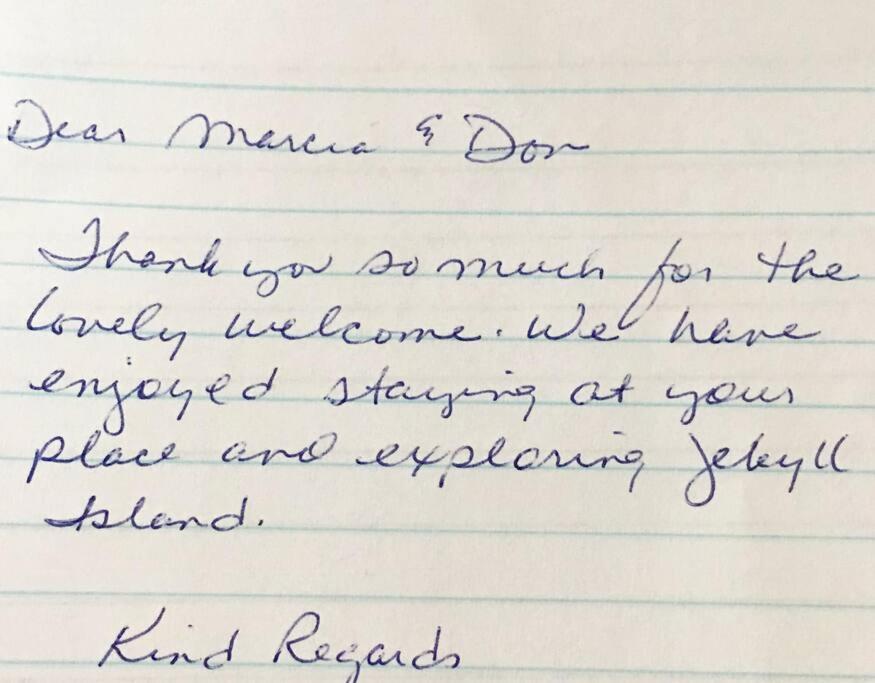 Dear Marcia & Don
Thank you so much for the
lovely welcome. We have
enjoyed staying at your
place and exploring Jekyll
Island.
Kind Regards